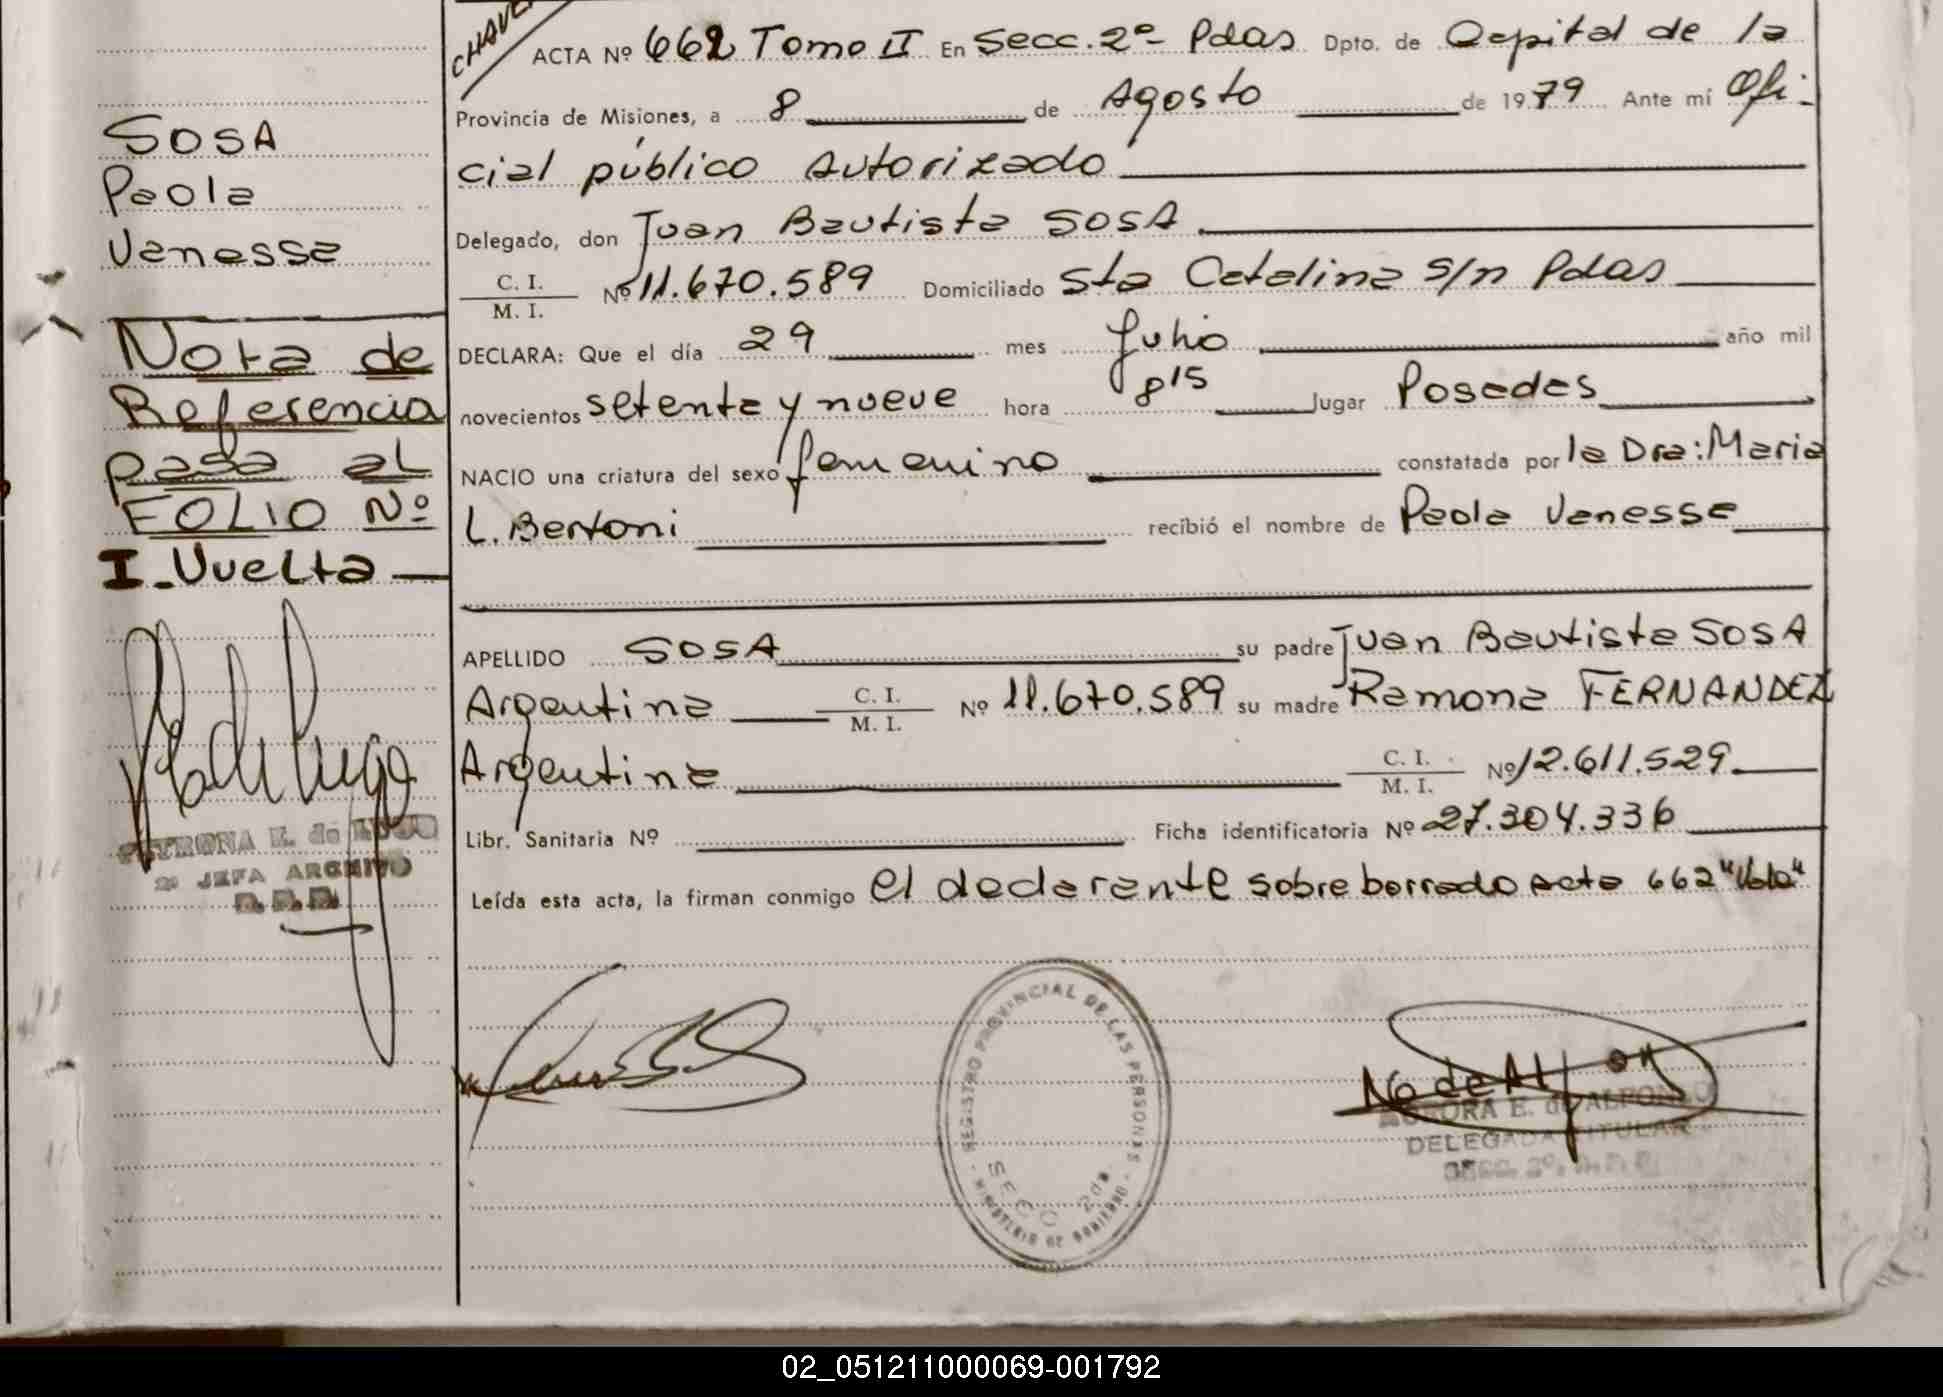 CHAVE
ACTA Nº 662 Tomo II En Secc. 2º Pdas Dpto. de Capital de la
Provincia de Misiones, a 8 de Agosto de 1979 Ante mí Ofi-
cial público autorizado
Delegado, don Juan Bautista SOSA
C. I.
M. I.
Nº 11.670.589 Domiciliado Sta Catalina s/n Pdas
DECLARA: Que el día 29 mes Julio año mil
novecientos setenta y nueve hora 8 15 lugar Posadas
NACIO una criatura del sexo femenino constatada por la Dra: Maria
L. Bertoni recibió el nombre de Paola Vanessa
APELLIDO SOSA su padre Juan Bautista SOSA
Argentina C. I.
M. I.
Nº 11.670.589 su madre Ramona FERNANDEZ
Argentina C. I.
M. I.
Nº 12.611.529
Libr. Sanitaria Nº Ficha identificatoria Nº 27.304.336
Leída esta acta, la firman conmigo el declarante sobre borrado acta 662 "Vale"
SOSA
Paola
Vanessa
Nota de
Referencia
pasa al
FOLIO Nº
I. Vuelta
PETRONA E. de LUGO
2º JEFA ARCHIVO
REGISTRO PROVINCIAL DE LAS PERSONAS - MINISTERIO DE GOBIERNO
SECC. 2da
AURORA E. de ALFONSO
DELEGADA TITULAR
SECC. 2º
02_051211000069-001792